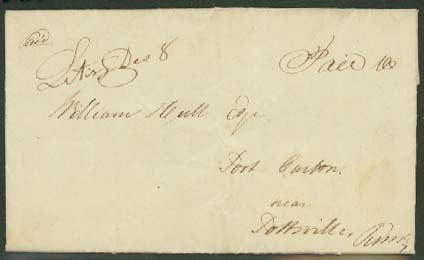 Paid
Dec 8
Paid 10
William Hull Esqr
Port Carbon
near
Pottsville